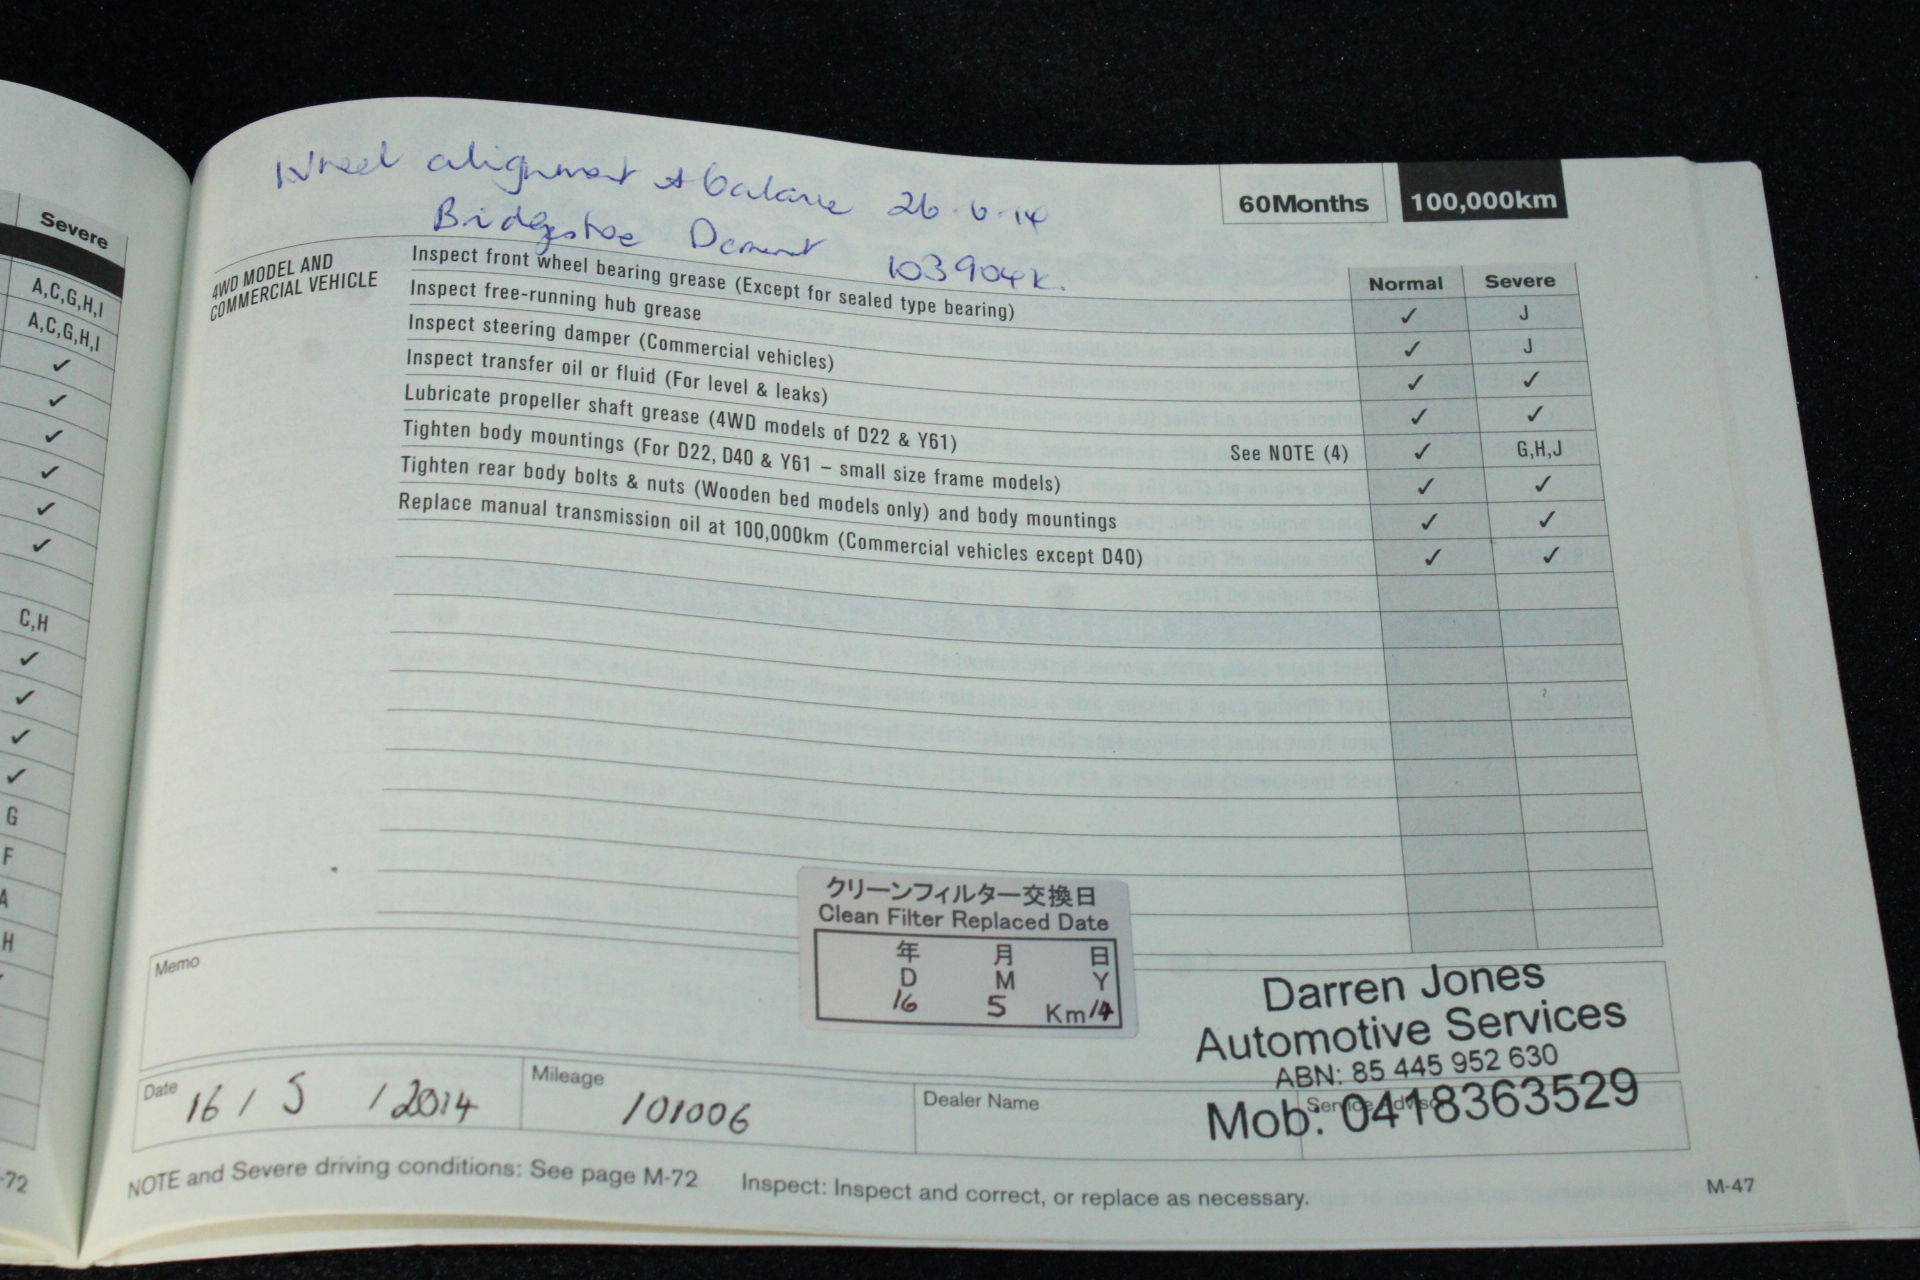 Wheel alignment & balance 26.6.14
Bridgestone 103904k.
60Months 100,000km
Normal Severe
4WD MODEL AND
COMMERCIAL VEHICLE
Inspect front wheel bearing grease (Except for sealed type bearing) ✓ J
Inspect free-running hub grease ✓ J
Inspect steering damper (Commercial vehicles) ✓ ✓
Inspect transfer oil or fluid (For level & leaks) ✓ ✓
Lubricate propeller shaft grease (4WD models of D22 & Y61) See NOTE (4) ✓ G,H,J
Tighten body mountings (For D22, D40 & Y61 – small size frame models) ✓ ✓
Tighten rear body bolts & nuts (Wooden bed models only) and body mountings ✓ ✓
Replace manual transmission oil at 100,000km (Commercial vehicles except D40) ✓ ✓
Memo
クリーンフィルター交換日
Clean Filter Replaced Date
年 月 日
D M Y
16 5 Km/14
Darren Jones
Automotive Services
ABN: 85 445 952 630
Mob: 0418363529
Date 16 / 5 / 2014
Mileage 101006
Dealer Name
Service Advisor
NOTE and Severe driving conditions: See page M-72 Inspect: Inspect and correct, or replace as necessary.
M-47
Severe
A,C,G,H,I
A,C,G,H,I
✓
✓
✓
✓
✓
✓
C,H
✓
✓
✓
✓
G
F
A
H
-72